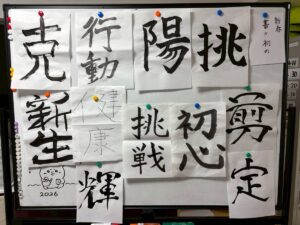 新春
書き初め
挑
陽
行動
克
剪定
初心
挑戦
健康
輝
新生
2026